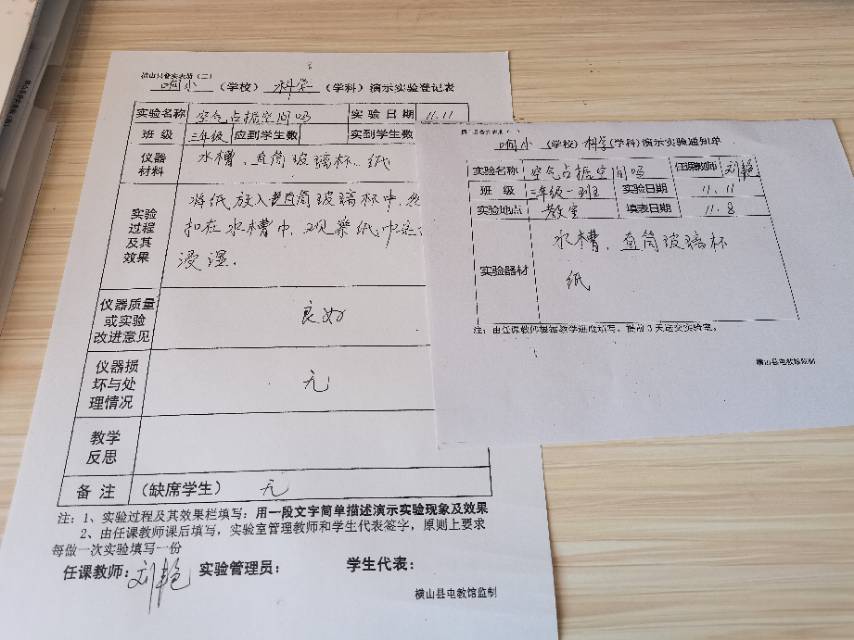 响小 (学校) 科学 (学科) 演示实验登记表
实验名称 空气占据空间吗 实验日期 11.11
班 级 三年级 应到学生数 实到学生数
仪器材料 水槽、直筒玻璃杯、纸
实验过程及其效果
将纸放入直筒玻璃杯中,
扣在水槽中,观察纸巾
浸湿.
仪器质量或实验改进意见 良好
仪器损坏与处理情况 无
教学反思
备 注 (缺席学生) 无
注:1、实验过程及其效果栏填写:用一段文字简单描述演示实验现象及效果
2、由任课教师课后填写,实验室管理教师和学生代表签字,原则上要求
每做一次实验填写一份
任课教师:刘艳 实验管理员: 学生代表:
横山县电教馆监制
响小 (学校) 科学 (学科) 演示实验通知单
实验名称 空气占据空间吗 任课教师 刘艳
班 级 三年级一班 实验日期 11.11
实验地点 教室 填表日期 11.8
实验器材 水槽、直筒玻璃杯
纸
注:由任课教师根据教学进度填写,提前3天送交实验室。
横山县电教馆监制